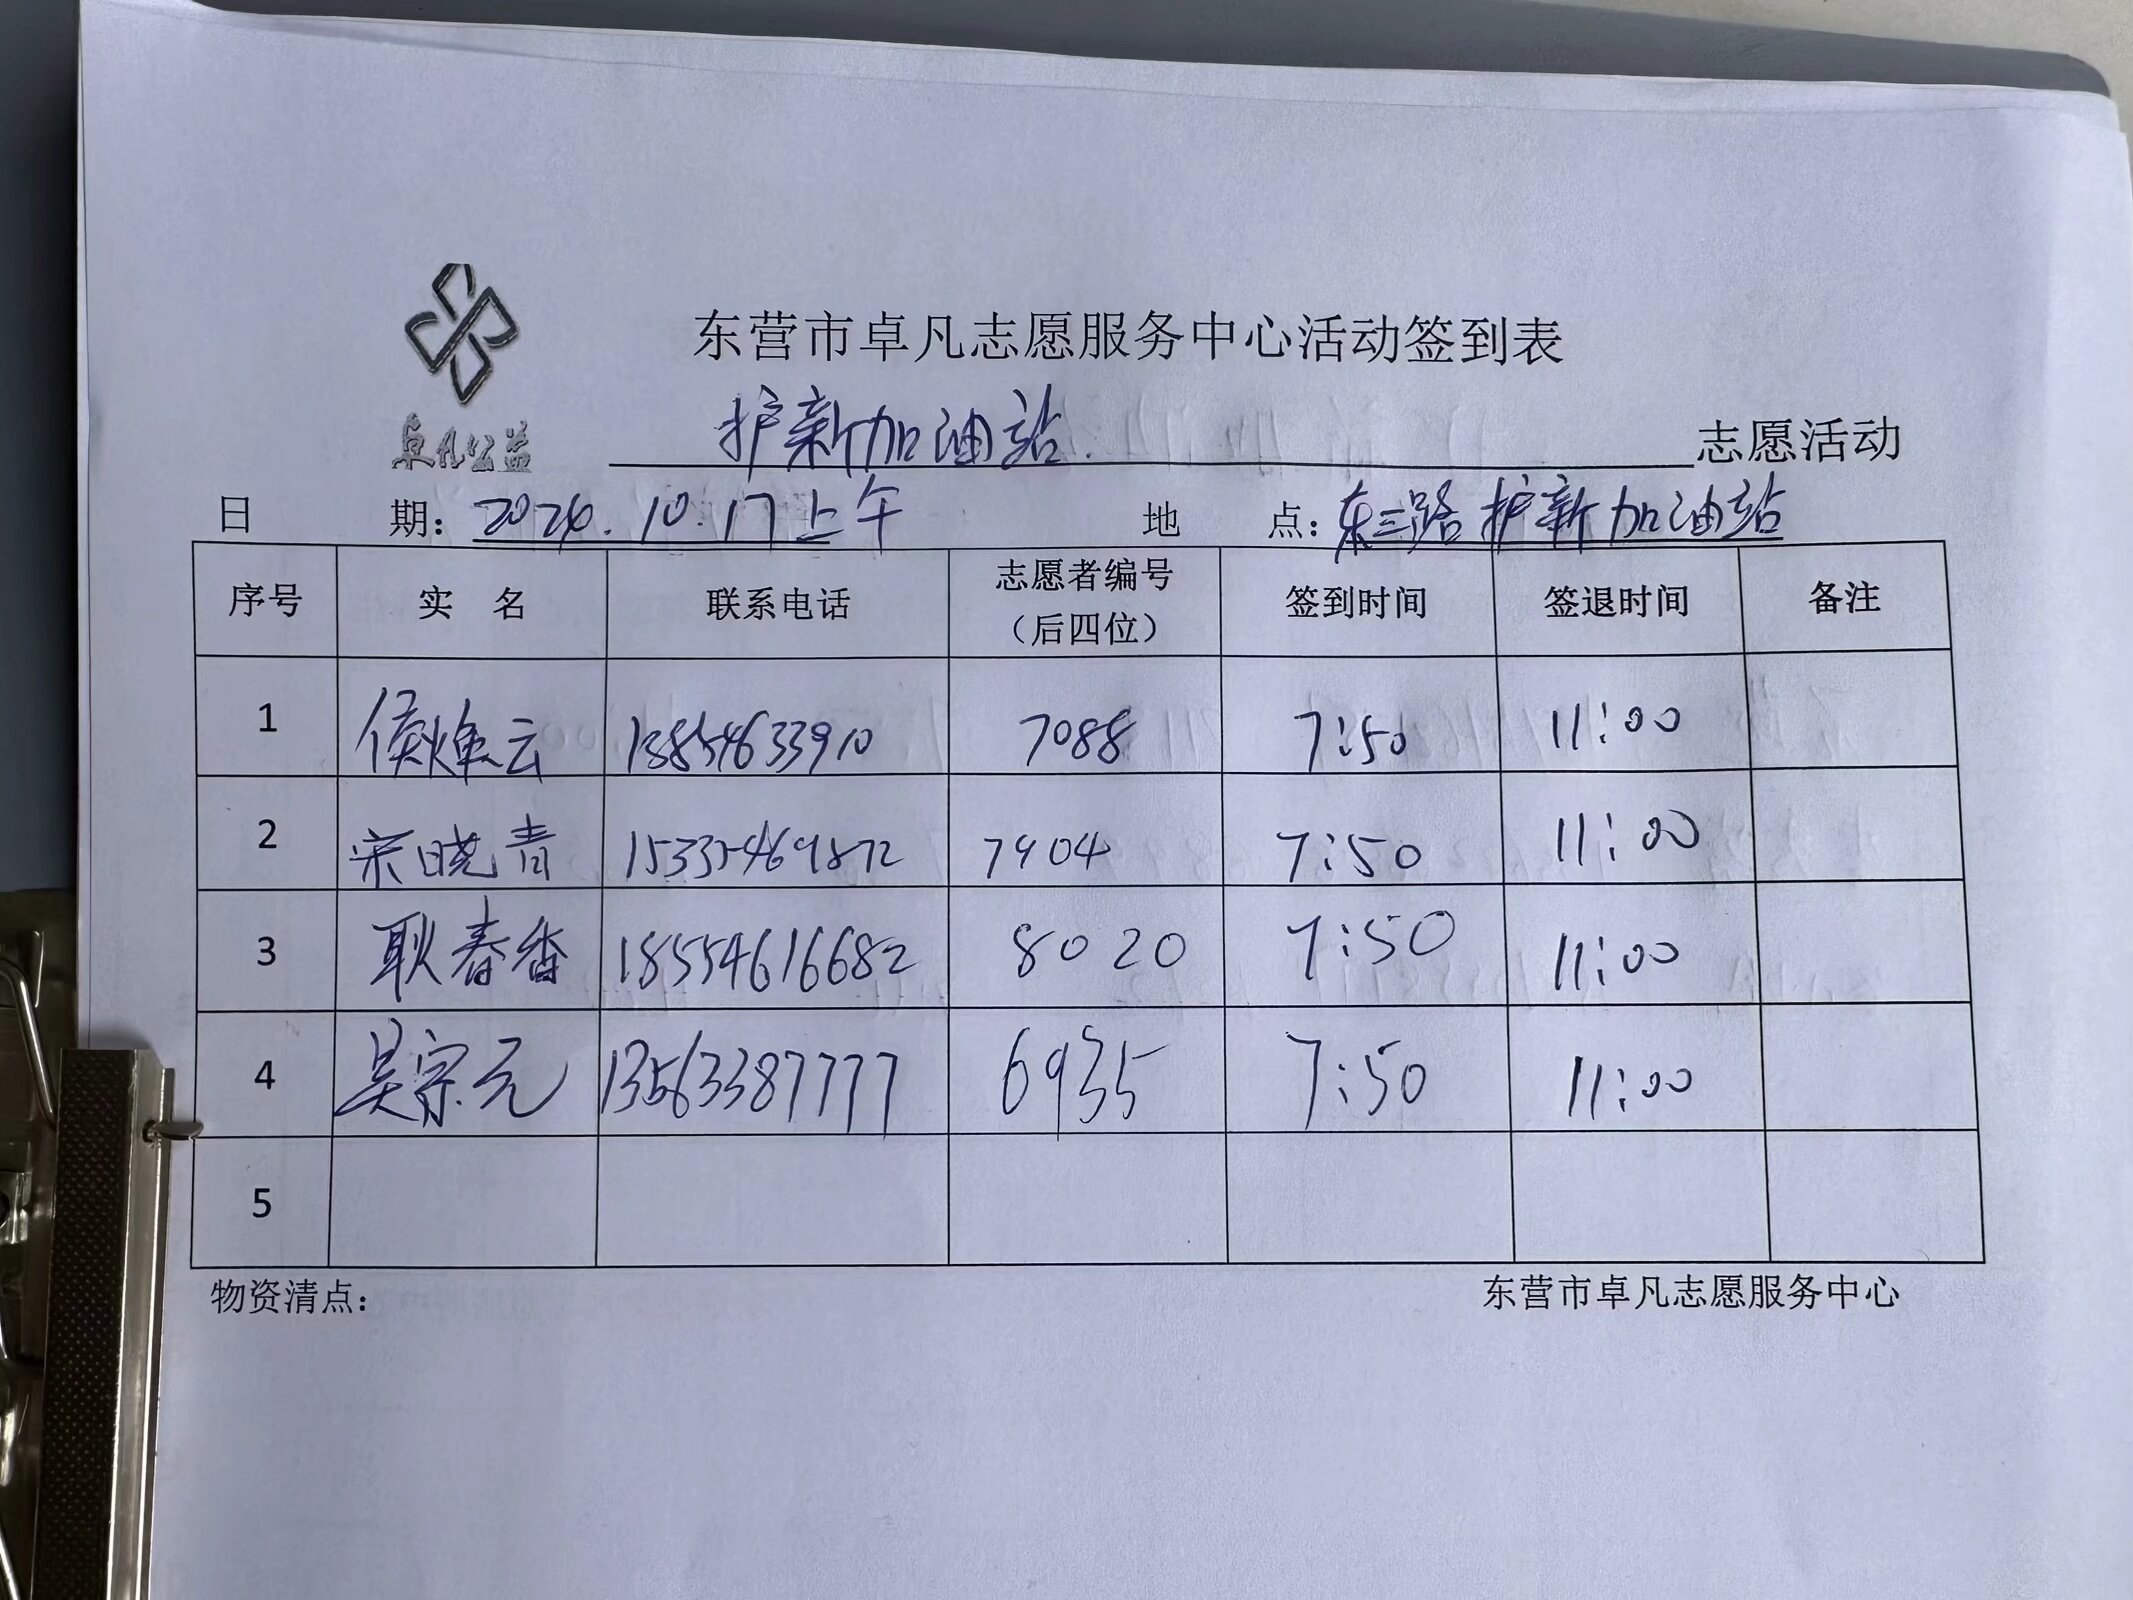 东营市卓凡志愿服务中心活动签到表
卓凡公益
护新加油站 志愿活动
日 期：2024.10.17上午 地 点：东三路护新加油站
序号 实 名 联系电话 志愿者编号（后四位） 签到时间 签退时间 备注
1 侯焕云 13854633910 7088 7:50 11:00
2 宋晓青 15335469872 7904 7:50 11:00
3 耿春香 18554616682 8020 7:50 11:00
4 吴宗元 13563387777 6935 7:50 11:00
5
物资清点： 东营市卓凡志愿服务中心